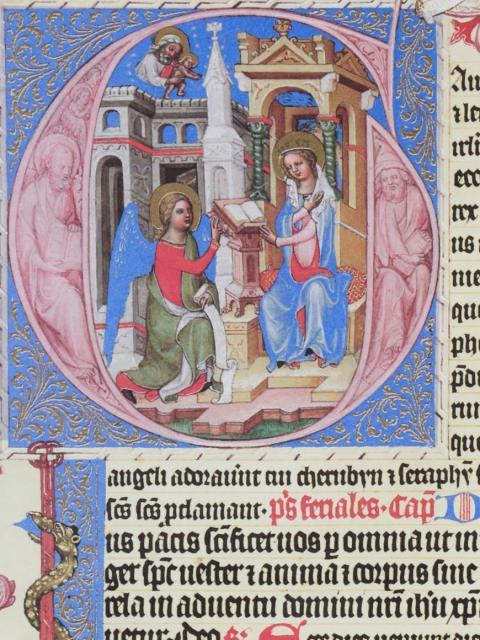 angeli adorauūt cui cherubyn ⁊ seraphȳ
sc̄s sc̄s p̄clamant· p̄s feriales· Cap̄ D
us pacis sc̄ificet uos ꝑ omnia ut in
ger sp̄c uester ⁊ anima ⁊ corpus sine
rela in aduentu domini nr̄i ihu xp̄
Au
⁊ le
irli
ecc
rex
us
me
que
phe
rum
que